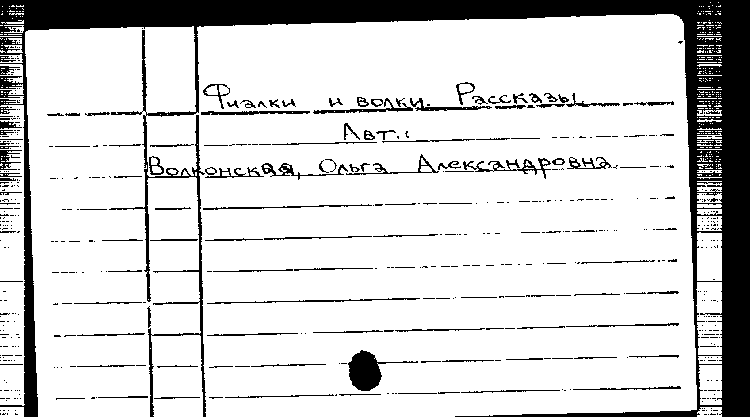 Фиалки и волки. Рассказы.
Авт.:
Волконская, Ольга Александровна.